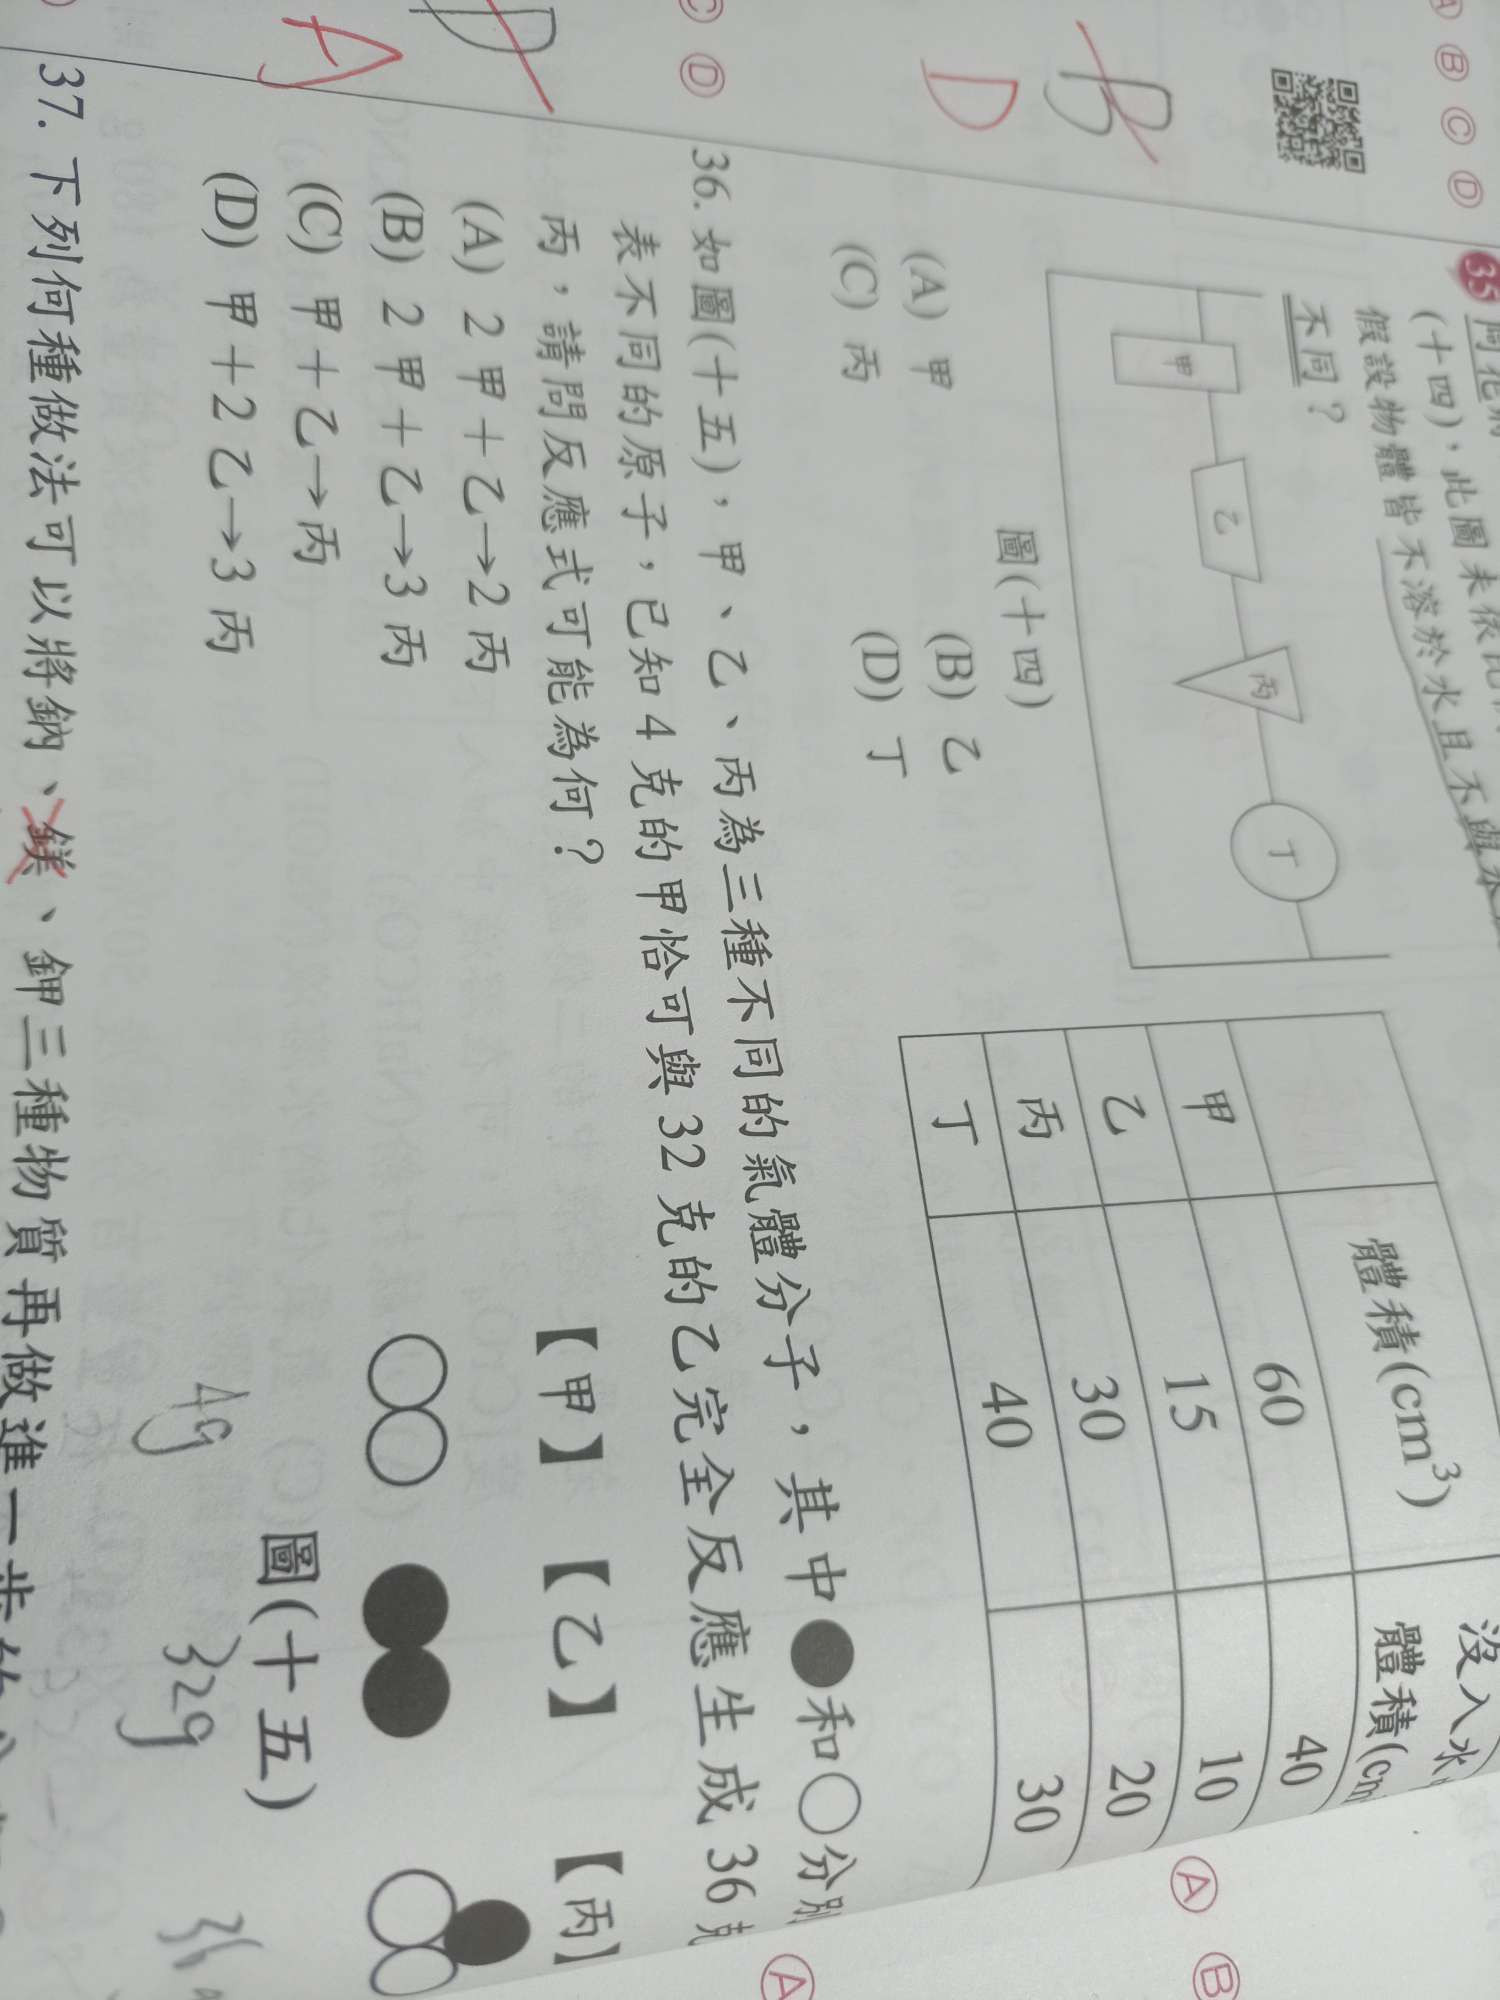 A B C D
35 阿花將
(十四),此圖未依比例
假設物體皆不溶於水且不與水
不同?
甲
乙
丙
丁
圖(十四)
(A) 甲 (B) 乙
(C) 丙 (D) 丁
體積(cm³) 沒入水
體積(cm
甲 60 40
乙 15 10
丙 30 20
丁 40 30
B
D
C D
36. 如圖(十五),甲、乙、丙為三種不同的氣體分子,其中●和○分別
表不同的原子,已知 4 克的甲恰可與 32 克的乙完全反應生成 36 克
丙,請問反應式可能為何?
(A) 2 甲+乙→2 丙
(B) 2 甲+乙→3 丙
(C) 甲+乙→丙
(D) 甲+2 乙→3 丙
【甲】 【乙】 【丙】
圖(十五)
4g 32g 36
D
A
37. 下列何種做法可以將鈉、鎂、鉀三種物質再做進一步的
A B
A